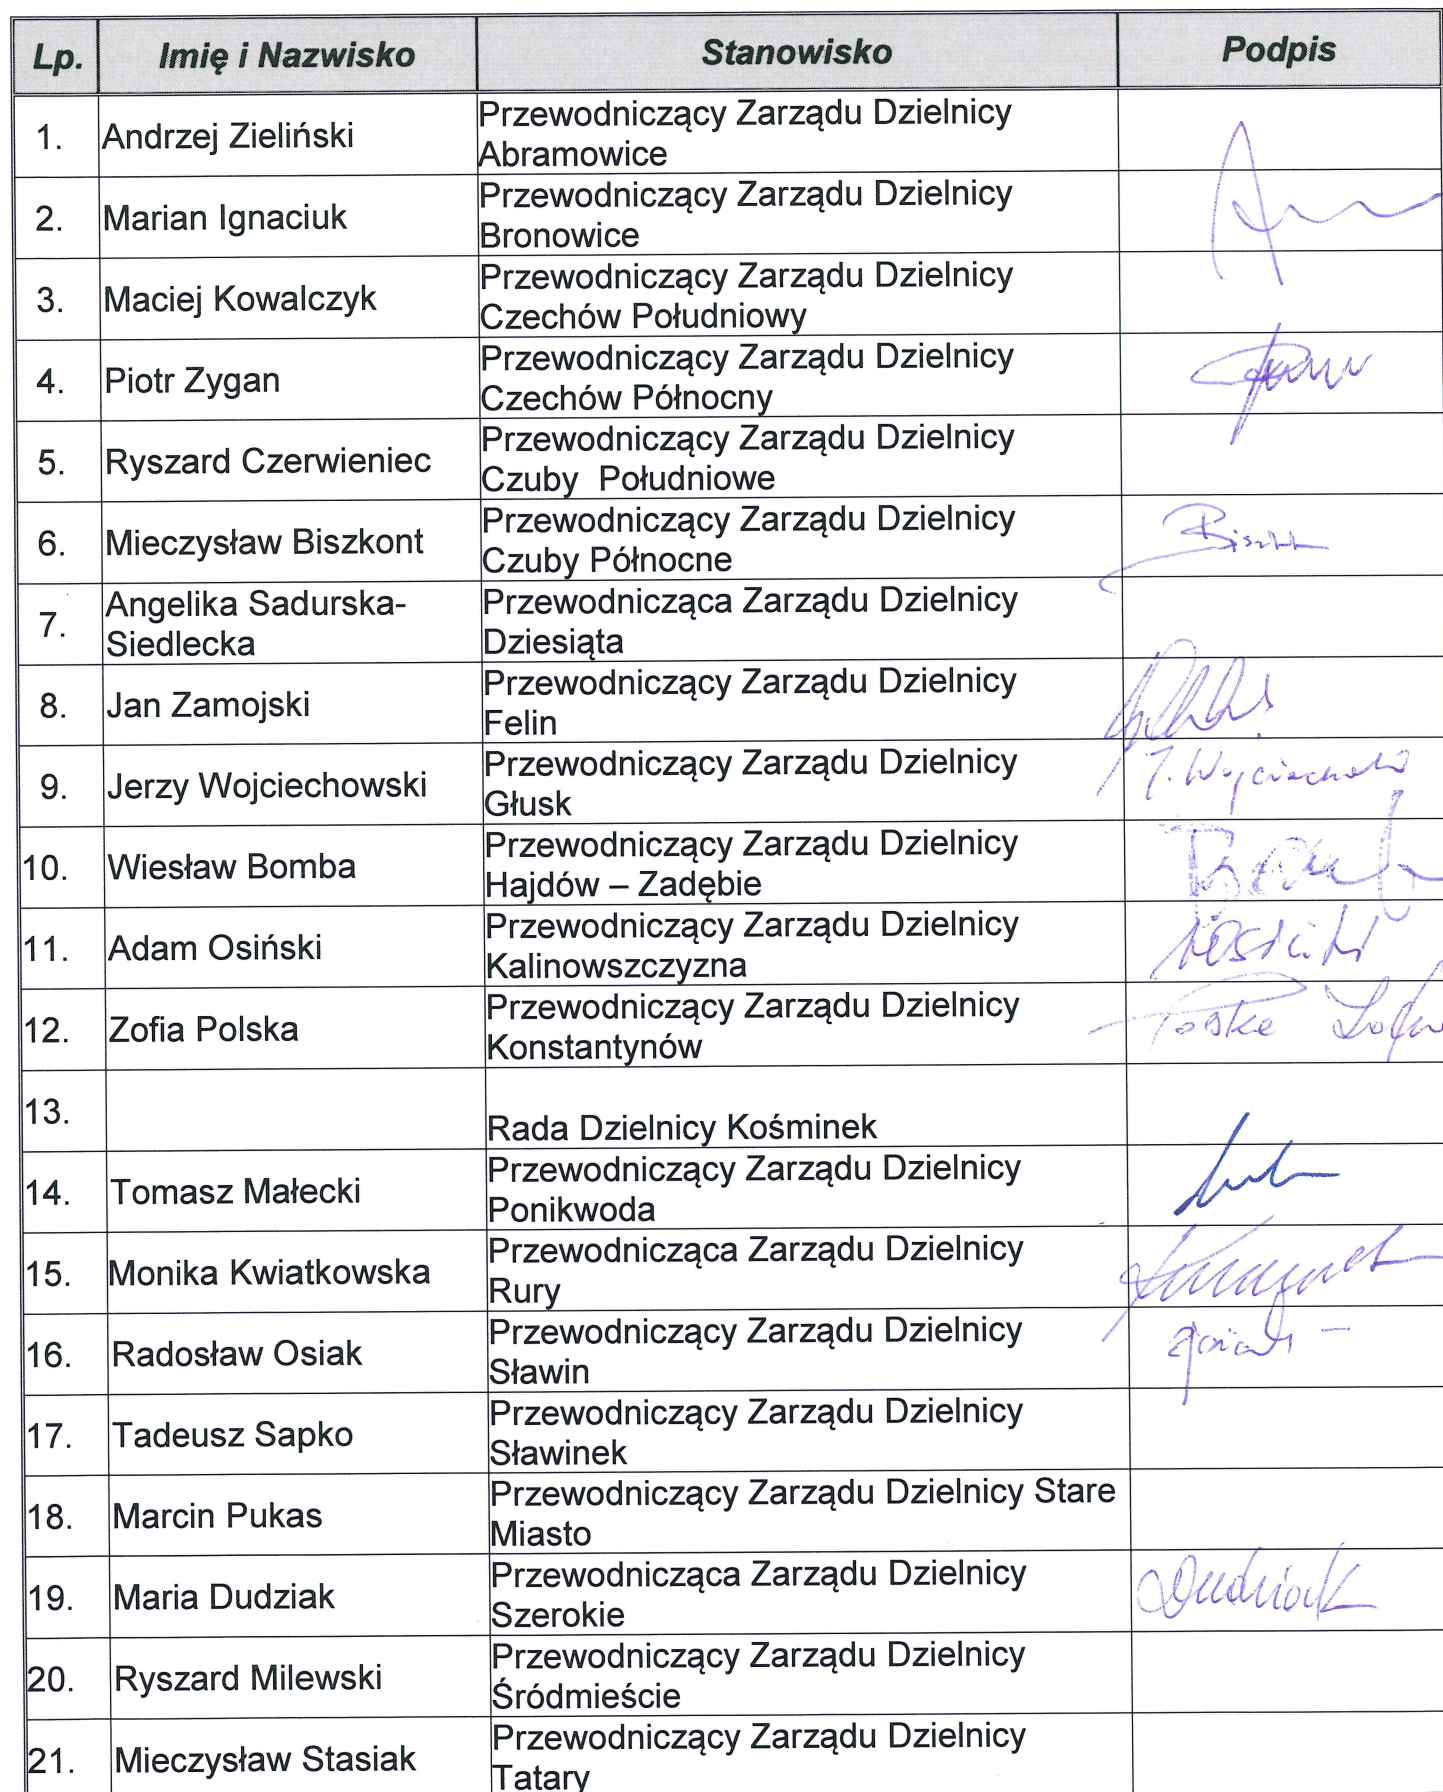 Lp. Imię i Nazwisko Stanowisko Podpis
1. Andrzej Zieliński Przewodniczący Zarządu Dzielnicy
Abramowice
2. Marian Ignaciuk Przewodniczący Zarządu Dzielnicy
Bronowice
3. Maciej Kowalczyk Przewodniczący Zarządu Dzielnicy
Czechów Południowy
4. Piotr Zygan Przewodniczący Zarządu Dzielnicy
Czechów Północny
5. Ryszard Czerwieniec Przewodniczący Zarządu Dzielnicy
Czuby Południowe
6. Mieczysław Biszkont Przewodniczący Zarządu Dzielnicy
Czuby Północne
7. Angelika Sadurska-
Siedlecka
Przewodnicząca Zarządu Dzielnicy
Dziesiąta
8. Jan Zamojski Przewodniczący Zarządu Dzielnicy
Felin
9. Jerzy Wojciechowski Przewodniczący Zarządu Dzielnicy
Głusk
10. Wiesław Bomba Przewodniczący Zarządu Dzielnicy
Hajdów – Zadębie
11. Adam Osiński Przewodniczący Zarządu Dzielnicy
Kalinowszczyzna
12. Zofia Polska Przewodniczący Zarządu Dzielnicy
Konstantynów
13. Rada Dzielnicy Kośminek
14. Tomasz Małecki Przewodniczący Zarządu Dzielnicy
Ponikwoda
15. Monika Kwiatkowska Przewodnicząca Zarządu Dzielnicy
Rury
16. Radosław Osiak Przewodniczący Zarządu Dzielnicy
Sławin
17. Tadeusz Sapko Przewodniczący Zarządu Dzielnicy
Sławinek
18. Marcin Pukas Przewodniczący Zarządu Dzielnicy Stare
Miasto
19. Maria Dudziak Przewodnicząca Zarządu Dzielnicy Dudziak
Szerokie
20. Ryszard Milewski Przewodniczący Zarządu Dzielnicy
Śródmieście
21. Mieczysław Stasiak Przewodniczący Zarządu Dzielnicy
Tatary